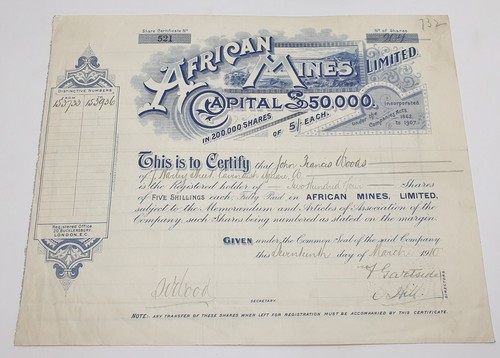 732
Share Certificate No
521
No of Shares
204
AFRICAN
MINES,
LIMITED.
CAPITAL £50,000.
IN 200,000 SHARES
OF 5/- EACH.
Incorporated
under the
Companies Acts
1862
to
1907.
DISTINCTIVE NUMBERS.
This is to Certify that John Francis Woods
of Harley Street Cavendish Square W.
is the Registered holder of Two Hundred Four Shares
of FIVE SHILLINGS each, Fully Paid in AFRICAN MINES, LIMITED,
subject to the Memorandum and Articles of Association of the
Company, such Shares being numbered as stated on the margin.
Registered Office
LONDON, E.C.
GIVEN under the Common Seal of the said Company
this Seventeenth day of March 1910
DIRECTORS
SECRETARY
NOTE:- ANY TRANSFER OF THESE SHARES WHEN LEFT FOR REGISTRATION MUST BE ACCOMPANIED BY THIS CERTIFICATE.